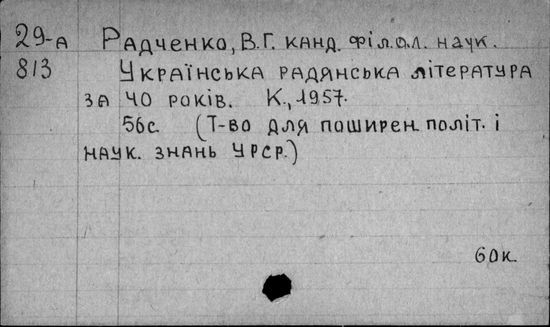 29-А Радченко, В.Г. канд. філол. наук.
813 Українська радянська література
за 40 років. К., 1957.
56с. (Т-во для поширен. політ. і
наук. знань УРСР.)
60к.